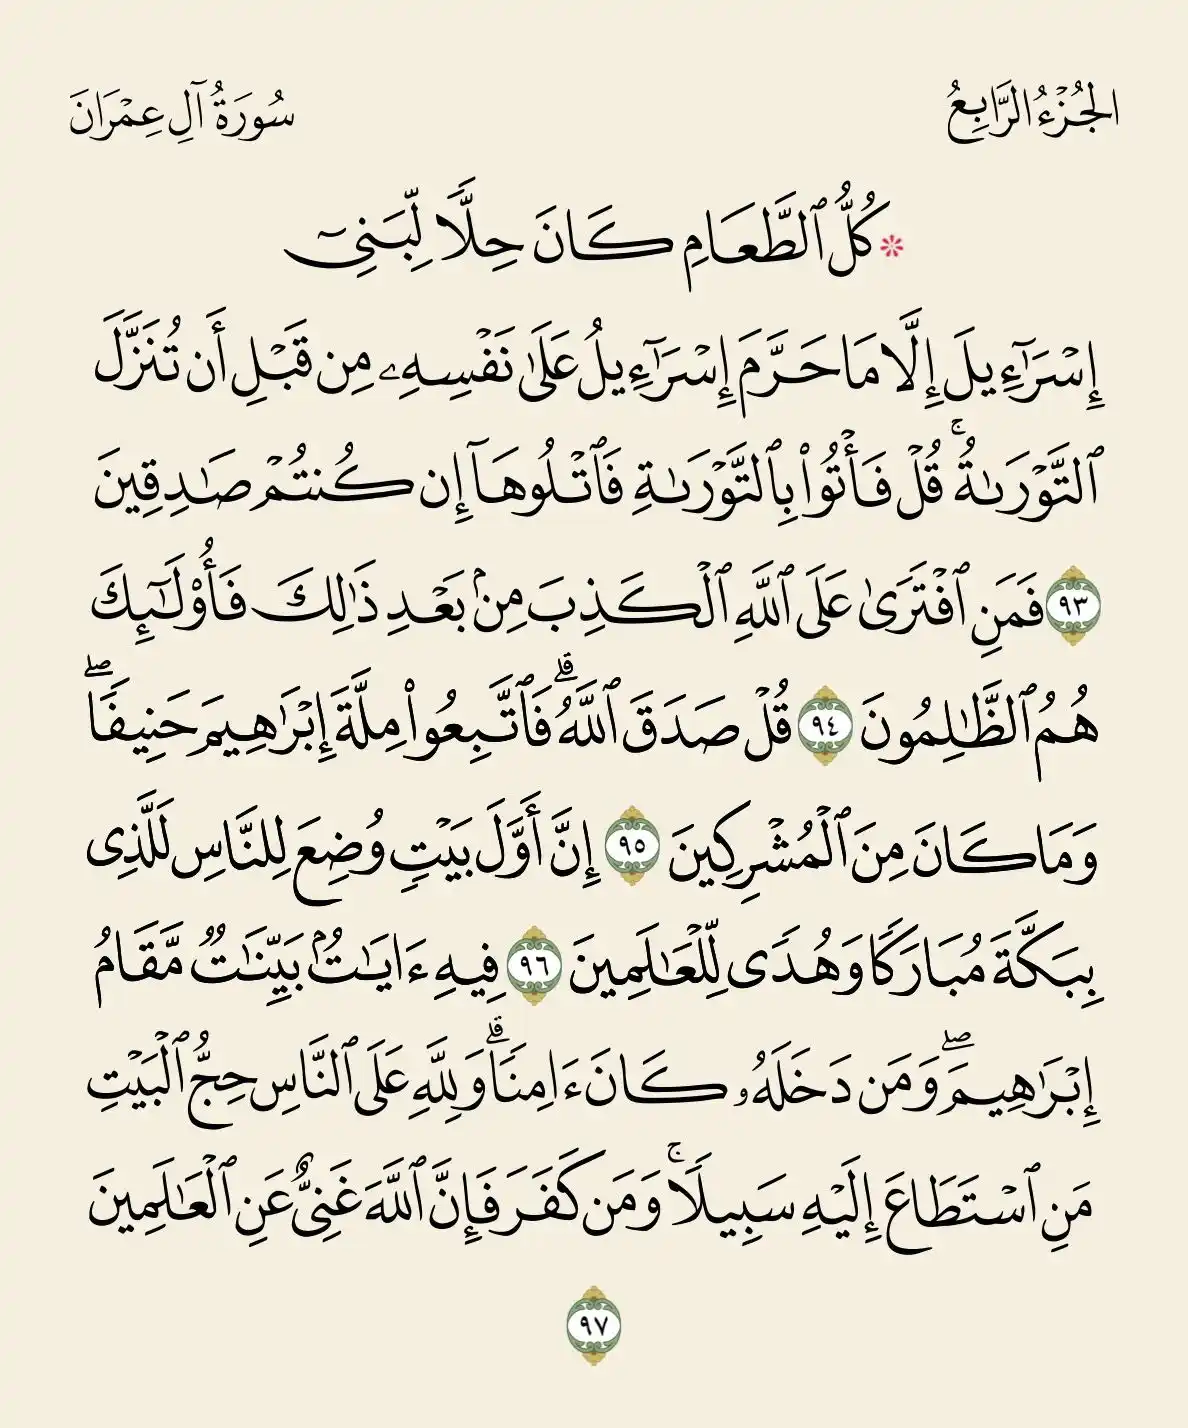 الجُزْءُ الرَّابِعُ
سُورَةُ آلِ عِمْرَانَ
كُلُّ ٱلطَّعَامِ كَانَ حِلًّا لِّبَنِىٓ
إِسْرَٰٓءِيلَ إِلَّا مَا حَرَّمَ إِسْرَٰٓءِيلُ عَلَىٰ نَفْسِهِۦ مِن قَبْلِ أَن تُنَزَّلَ
ٱلتَّوْرَىٰةُ ۚ قُلْ فَأْتُوا۟ بِٱلتَّوْرَىٰةِ فَٱتْلُوهَآ إِن كُنتُمْ صَـٰدِقِينَ
٩٣ فَمَنِ ٱفْتَرَىٰ عَلَى ٱللَّهِ ٱلْكَذِبَ مِنۢ بَعْدِ ذَٰلِكَ فَأُو۟لَـٰٓئِكَ
هُمُ ٱلظَّـٰلِمُونَ ٩٤ قُلْ صَدَقَ ٱللَّهُ ۗ فَٱتَّبِعُوا۟ مِلَّةَ إِبْرَٰهِيمَ حَنِيفًا ۖ
وَمَا كَانَ مِنَ ٱلْمُشْرِكِينَ ٩٥ إِنَّ أَوَّلَ بَيْتٍ وُضِعَ لِلنَّاسِ لَلَّذِى
بِبَكَّةَ مُبَارَكًا وَهُدًى لِّلْعَـٰلَمِينَ ٩٦ فِيهِ ءَايَـٰتٌۢ بَيِّنَـٰتٌ مَّقَامُ
إِبْرَٰهِيمَ ۖ وَمَن دَخَلَهُۥ كَانَ ءَامِنًا ۗ وَلِلَّهِ عَلَى ٱلنَّاسِ حِجُّ ٱلْبَيْتِ
مَنِ ٱسْتَطَاعَ إِلَيْهِ سَبِيلًا ۚ وَمَن كَفَرَ فَإِنَّ ٱللَّهَ غَنِىٌّ عَنِ ٱلْعَـٰلَمِينَ
٩٧